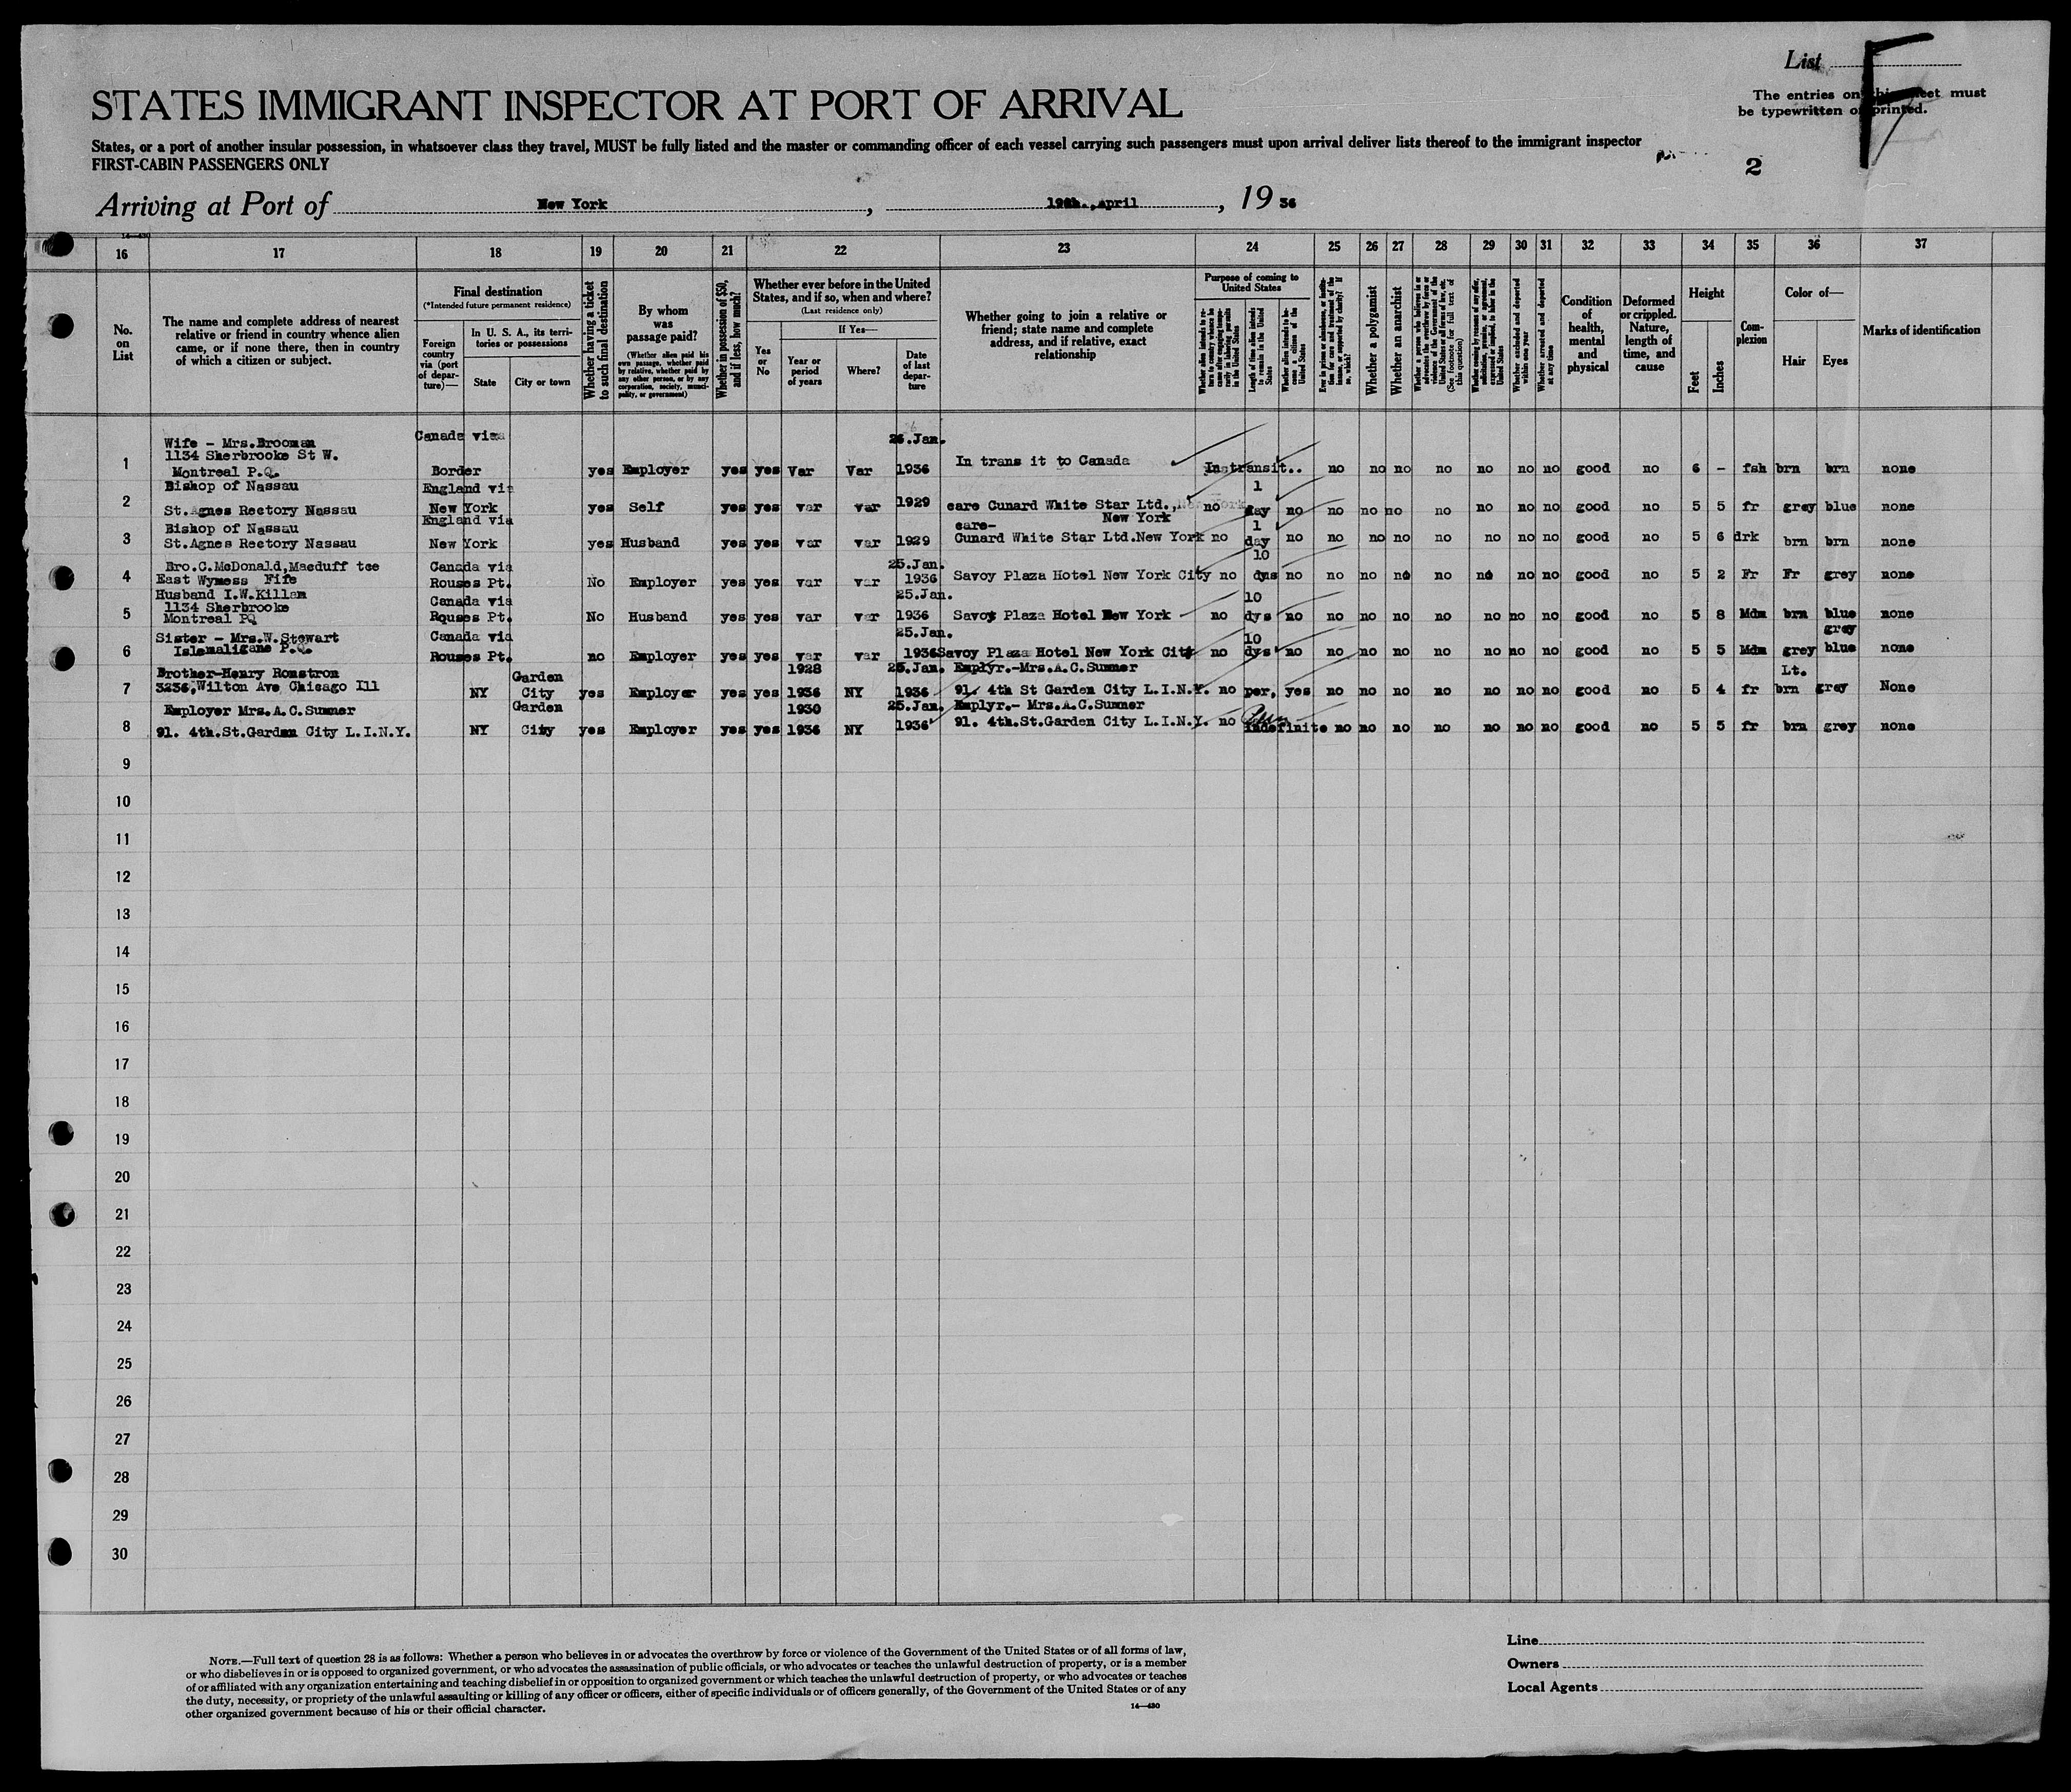 List
The entries on this sheet must
be typewritten or printed.
STATES IMMIGRANT INSPECTOR AT PORT OF ARRIVAL
States, or a port of another insular possession, in whatsoever class they travel, MUST be fully listed and the master or commanding officer of each vessel carrying such passengers must upon arrival deliver lists thereof to the immigrant inspector
FIRST-CABIN PASSENGERS ONLY
2
Arriving at Port of New York, April, 1936
16 17 18 19 20 21 22 23 24 25 26 27 28 29 30 31 32 33 34 35 36 37
No. on List
The name and complete address of nearest relative or friend in country whence alien came, or if none there, then in country of which a citizen or subject.
Final destination
(*Intended future permanent residence)
Foreign country via (port of departure)—
In U. S. A., its territories or possessions
State
City or town
Whether having a ticket to such final destination
By whom was passage paid?
(Whether alien paid his own passage, whether paid by relative, whether paid by any other person, or by any corporation, society, municipality, or government)
Whether in possession of $50, and if less, how much?
Whether ever before in the United States, and if so, when and where?
(Last residence only)
Yes or No
If Yes—
Year or period of years
Where?
Date of last departure
Whether going to join a relative or friend; state name and complete address, and if relative, exact relationship
Purpose of coming to United States
Length of time alien intends to remain in the United States
Whether alien intends to become a citizen of the United States
Whether a polygamist
Whether an anarchist
(See footnote for full text of this question)
Whether excluded and deported within one year
Whether arrested and deported at any time
Condition of health, mental and physical
Deformed or crippled. Nature, length of time, and cause
Height
Feet
Inches
Complexion
Color of—
Hair
Eyes
Marks of identification
Wife - Mrs.Brooman Canada via 26.Jan.
1134 Sherbrooke St W.
1 Montreal P.Q. Border yes Employer yes yes Var Var 1936 In trans it to Canada In transit.. no no no no no no no good no 6 - fsh brn brn none
Bishop of Nassau England via 1
2 St.Agnes Rectory Nassau New York yes Self yes yes var var 1929 care Cunard White Star Ltd., New York no day no no no no no no no no good no 5 5 fr grey blue none
Bishop of Nassau England via care- 1
3 St.Agnes Rectory Nassau New York yes Husband yes yes var var 1929 Cunard White Star Ltd.New York no day no no no no no no no no good no 5 6 drk brn brn none
Bro.C.McDonald,Macduff tce Canada via 25.Jan. 10
4 East Wymess Fife Rouses Pt. No Employer yes yes var var 1936 Savoy Plaza Hotel New York City no dys no no no no no no no no good no 5 2 Fr Fr grey none
Husband I.W.Killam Canada via 25.Jan. 10
1134 Sherbrooke
5 Montreal PQ Rouses Pt. No Husband yes yes var var 1936 Savoy Plaza Hotel New York no dys no no no no no no no no good no 5 8 Mdm brn blue none
Sister - Mrs.W.Stewart Canada via 25.Jan. 10 grey
6 Islemaligane P.Q. Rouses Pt. no Employer yes yes var var 1936 Savoy Plaza Hotel New York City no dys no no no no no no no no good no 5 5 Mdm grey blue none
Brother-Henry Ronstrom Garden 1928 25.Jan. Emplyr.-Mrs.A.C.Sumner Lt.
7 3236,Wilton Ave Chicago Ill NY City yes Employer yes yes 1936 NY 1936 91. 4th St Garden City L.I.N.Y. no per, yes no no no no no no no good no 5 4 fr brn grey None
Employer Mrs.A.C.Sumner Garden 1930 25.Jan. Emplyr.- Mrs.A.C.Sumner
8 91. 4th.St.Garden City L.I.N.Y. NY City yes Employer yes yes 1936 NY 1936 91. 4th.St.Garden City L.I.N.Y. no indefinite no no no no no no no good no 5 5 fr brn grey none
9
10
11
12
13
14
15
16
17
18
19
20
21
22
23
24
25
26
27
28
29
30
NOTE.—Full text of question 28 is as follows: Whether a person who believes in or advocates the overthrow by force or violence of the Government of the United States or of all forms of law,
or who disbelieves in or is opposed to organized government, or who advocates the assassination of public officials, or who advocates or teaches the unlawful destruction of property, or is a member
of or affiliated with any organization entertaining and teaching disbelief in or opposition to organized government or which teaches the unlawful destruction of property, or who advocates or teaches
the duty, necessity, or propriety of the unlawful assaulting or killing of any officer or officers, either of specific individuals or of officers generally, of the Government of the United States or of any
other organized government because of his or their official character.
14—430
Line
Owners
Local Agents